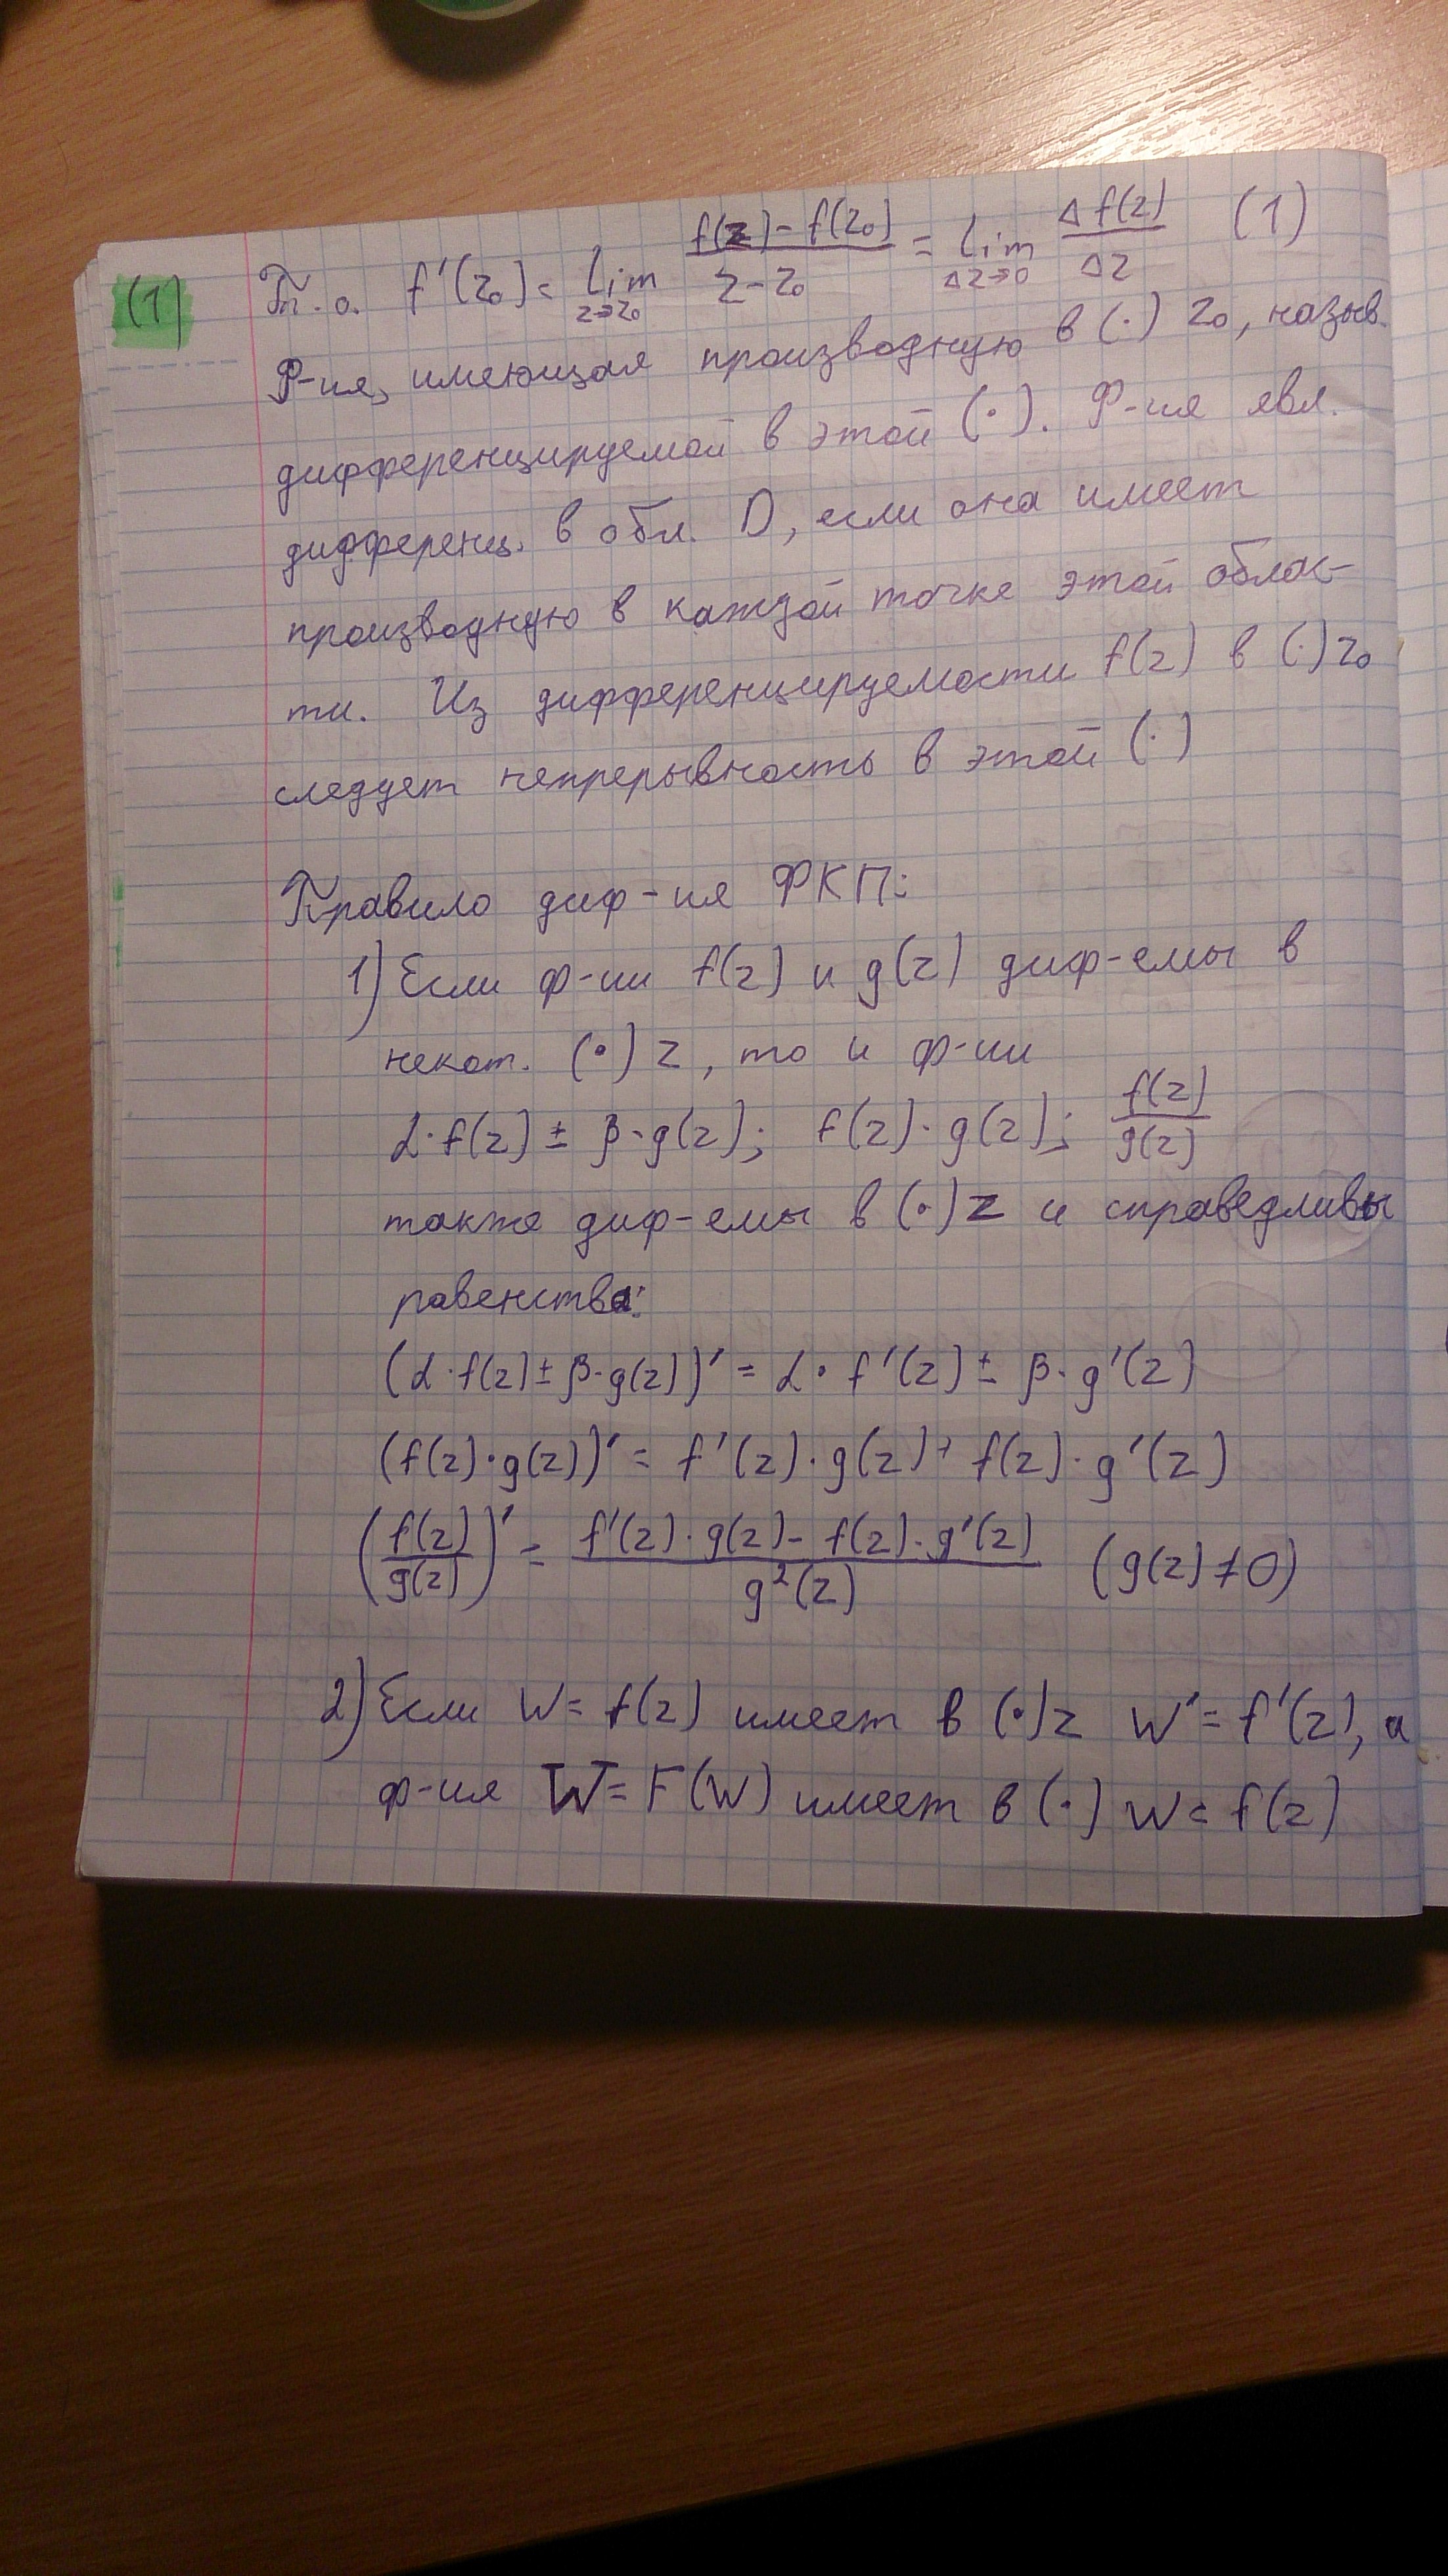 (1) Т.о. f'(z₀) = lim_{z→z₀} (f(z) - f(z₀))/(z - z₀) = lim_{Δz→0} Δf(z)/Δz (1)
Ф-ия, имеющая производную в (·) z₀, назыв.
дифференцируемой в этой (·). Ф-ия явл.
дифференц. в обл. D, если она имеет
производную в каждой точке этой облас-
ти. Из дифференцируемости f(z) в (·) z₀
следует непрерывность в этой (·)
Правило диф-ия ФКП:
1) Если ф-ии f(z) и g(z) диф-емы в
некот. (·) z, то и ф-ии
α·f(z) ± β·g(z); f(z)·g(z); f(z)/g(z)
также диф-емы в (·) z и справедливы
равенства:
(α·f(z) ± β·g(z))' = α·f'(z) ± β·g'(z)
(f(z)·g(z))' = f'(z)·g(z) + f(z)·g'(z)
(f(z)/g(z))' = (f'(z)·g(z) - f(z)·g'(z))/g²(z) (g(z) ≠ 0)
2) Если w = f(z) имеет в (·) z w' = f'(z), а
ф-ия W = F(w) имеет в (·) w = f(z)